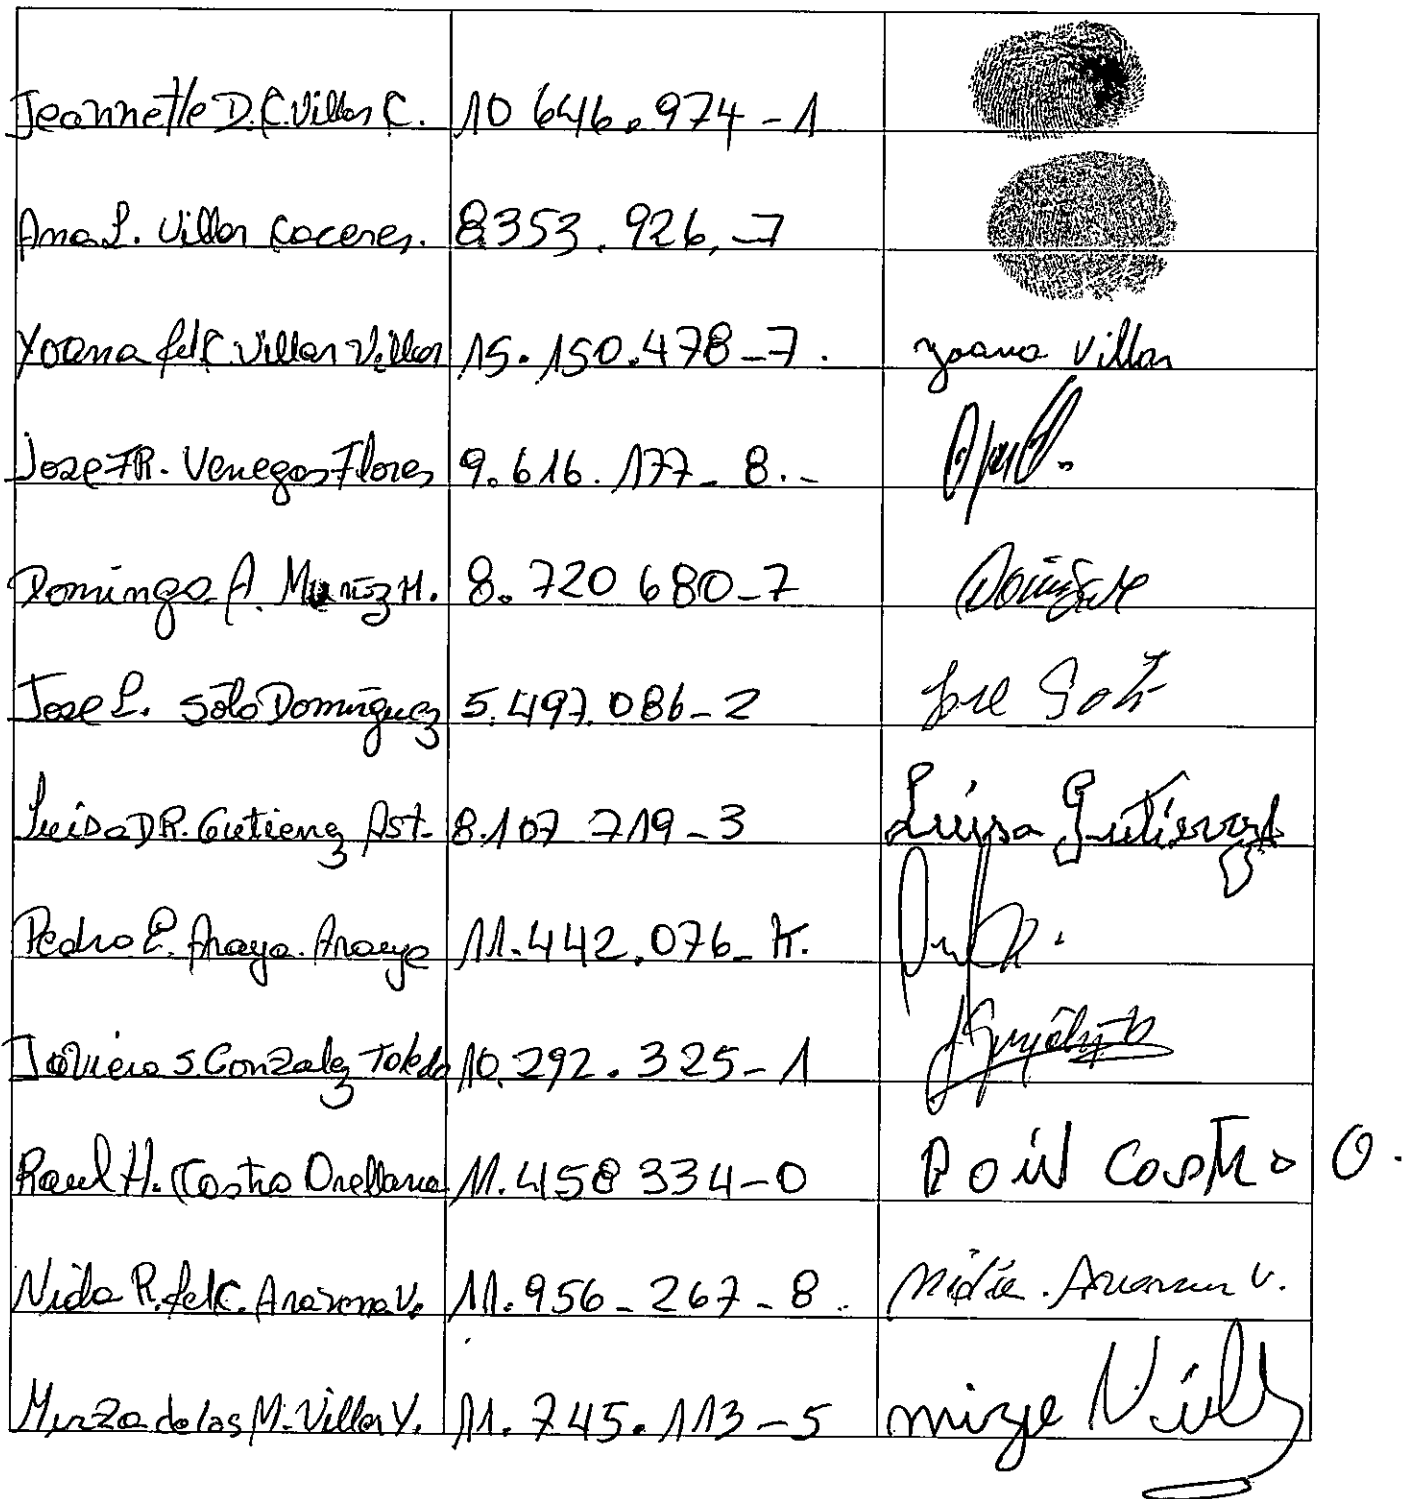 Jeannette D.C. Villar C. 10 646.974-1
Ana L. Villar Caceres. 8353.926,-7
Yoana del C. Villar Villar 15.150.478-7. yoana Villar
Jose FR. Venegas Flores 9.616.177-8.-
Domingo A. Muñoz M. 8.720 680-7
Jose L. Soto Dominguez 5.497.086-2 Jose Soto
Luisa DR. Gutierrez Ast. 8.107 719-3 Luisa Gutierrez
Pedro E. Araya. Araya 11.442.076-K.
Javiera S. Gonzalez Toledo 10.292.325-1
Raul H. Castro Orellana 11.458 334-0 Raúl Castro O.
Nida R. del C. Aravena V. 11.956-267-8.
Mirza de las M. Villar V. 11.745.113-5